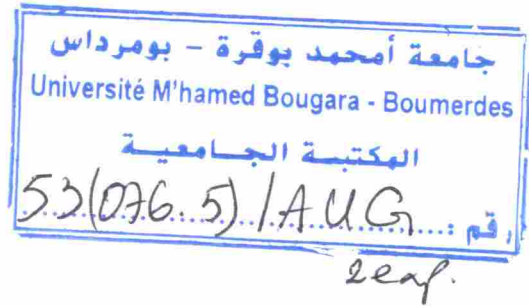 جامعة أمحمد بوقرة - بومرداس
Université M'hamed Bougara - Boumerdes
المكتبة الجامعية
رقم : 53(076.5)/AUG